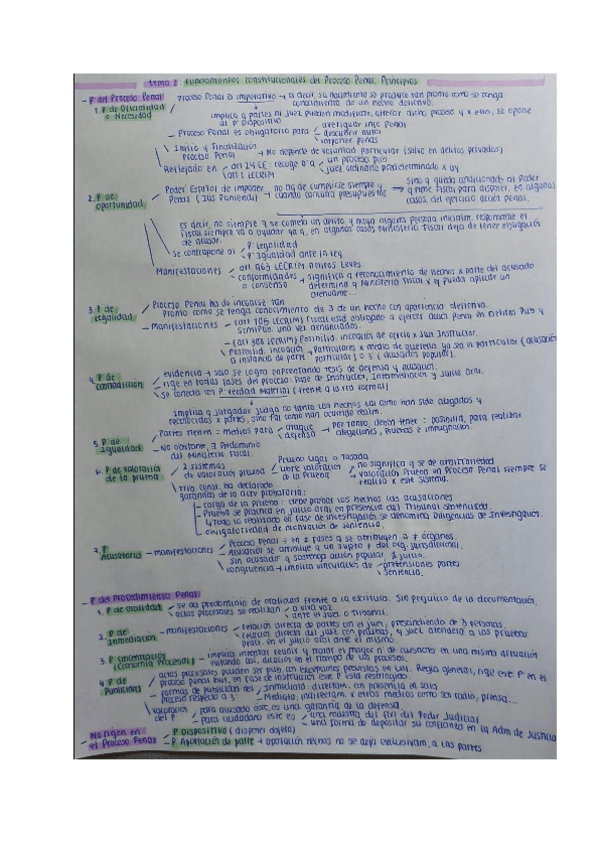 tema 2 Fundamentos constitucionales del Proceso Penal. Principios
- P del Proceso Penal
1. P de Oficialidad o Necesidad
Proceso Penal es imperativo → es decir, su nacimiento se produce tan pronto como se tenga
conocimiento de un hecho delictivo.
implica q partes ni Juez pueden modificar, alterar dicho proceso y x ello, se opone
al P Dispositivo
- Proceso Penal es obligatorio para
averiguar hcho Penal
descubrir autor
imponer penas
Inicio y Finalización Proceso Penal → No depende de voluntad particular (salvo en delitos privados)
Reflejado en
art 24 CE: recoge D a
art 1 LECRIM
un proceso púb
Juez ordinario predeterminado x ley
2. P de oportunidad
Poder Estatal de imponer Penas (Ius Puniendi)
no ha de cumplirse siempre y cuando concurra presupuestos
sino q queda condicionado al Poder
q tiene fiscal para disponer, en algunos
casos, del ejercicio acción penal.
es decir, no siempre q se cometa un delito y haya alguna persona
fiscal siempre va a
de acusar.
se contrapone al
P legalidad
P Igualdad ante la ley
Manifestaciones
art 963 LECRIM delitos leves
conformidades o consenso
significa q reconocimiento de hechos x parte del acusado
determina q Ministerio Fiscal x q pueda aplicar un
atenuante...
3. P de legalidad
Proceso Penal ha de incoarse tan
pronto como se tenga conocimiento de ∃ de un hecho con apariencia delictiva.
- Manifestaciones
(art 105 LECRIM) Fiscal está obligado a ejercer acción Penal en delitos Púb y
SemiPúb. una vez denunciados.
(art 303 LECRIM) Posibilid. incoación de oficio x Juez Instructor.
Posibilid. incoación a instancia de parte
Particulares x medio de querella ya sea el particular (acusación
particular) o s (acusación popular).
4. P de contradicción
evidencia → solo se logra enfrentando tesis de defensa y acusación.
rige en todas fases del proceso: Fase de Instrucción, Intermediación y Juicio Oral.
se conecta con P verdad Material (frente a la vrd formal)
implica q Juzgador juzga no tanto los hechos tal como han sido alegados y
reconocidos x partes, sino tal como han ocurrido realm.
5. P de Igualdad
Partes tienen = medios para
ataque
defensa
Por tanto, deben tener = posibilid. para realizar
alegaciones, pruebas e impugnación.
No obstante, ∃ Predominio
del Ministerio Fiscal.
6. P de valoración de la prueba
2 sistemas de valoración prueba
Prueba legal o Tasada
libre valoración de la Prueba
no significa q se dé arbitrariedad
valoración Prueba en Proceso Penal siempre se
realiza x este sistema.
trib const. ha declarado
garantías de la activ probatoria:
- carga de la prueba: debe probar los hechos las acusaciones
- Prueba se practica en Juicio Oral en presencia del Tribunal sentenciador.
↳ Todo lo realizado en fase de investigación se denomina Diligencias de Investigación.
- obligatoriedad de motivación de sentencia.
7. P Acusatorio
- manifestaciones
Proceso Penal ÷ en 2 fases q se atribuyen a ≠ órganos.
Acusación se atribuye a un sujeto ≠ del org. jurisdiccional.
sin acusado y sostenga acción popular ∄ juicio.
congruencia → implica vinculación de
pretensiones partes
sentencia.
- P del Procedimiento Penal
1. P de oralidad
se da predominio de oralidad frente a la escritura. Sin perjuicio de la documentación.
actos procesales se realizan
a viva voz
ante el Juez o Tribunal.
2. P de inmediación
- manifestaciones
relación directa de partes en el Juez, prescindiendo de 3 personas.
relación directa del Juez con pruebas, y Juez atenderá a las pruebas
prac. en el Juicio Oral ante él mismo.
3. P concentración (Economía Procesal)
implica intentar reunir y tratar el mayor nº de cuestiones en una misma actuación
evitando así, dilación en el tiempo de los procesos.
4. P de Publicidad
actos procesales pueden ser púb. con excepciones previstas en Ley. Regla general, rige este P en el
proceso penal bien, en fase de instrucción este P está restringido.
formas de publicidad del proceso respecto a 3º
Inmediata, directam. con presencia en sala
Mediata, indirectam. x otros medios como ser radio, prensa...
valoración del P
para acusado este es una garantía de la defensa.
para ciudadano este es
una muestra del fon del Poder Judicial
una forma de depositar su confianza en la Adm de Justicia
- No rigen en el Proceso Penal
P Dispositivo (disponer objeto)
P Aportación de parte → aportación hechos no se deja exclusivam. a las partes